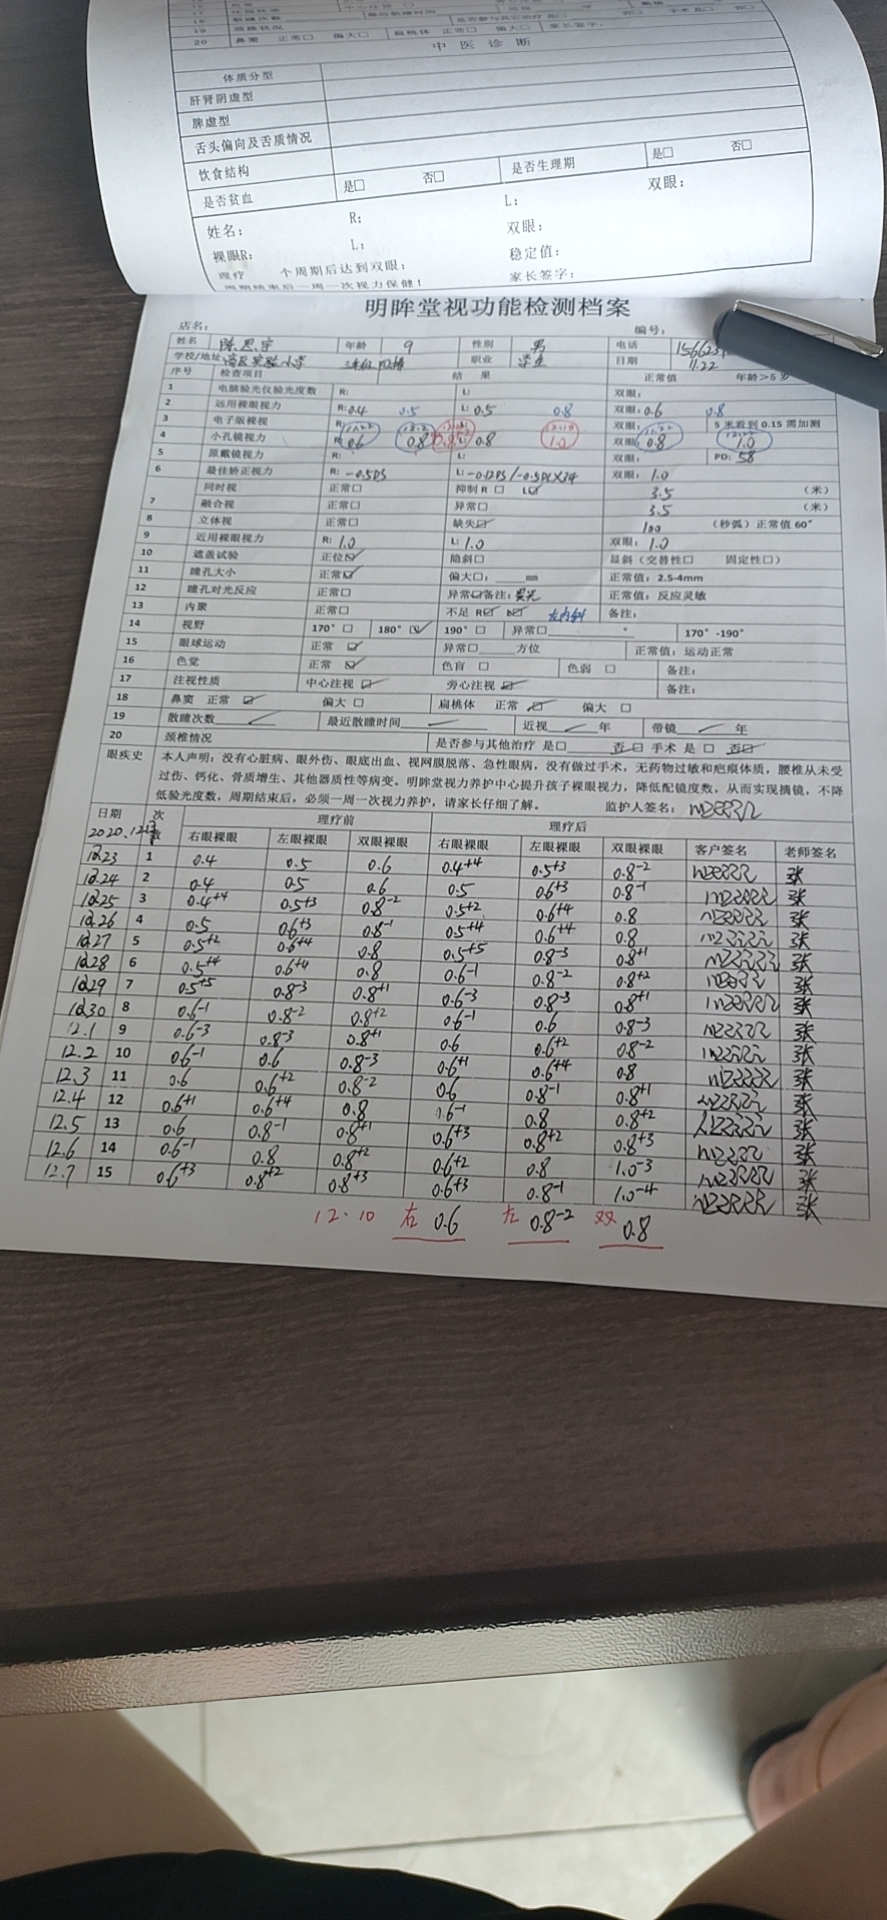 20 鼻窦 正常□ 偏大□ 扁桃体 正常□ 偏大□ 家长签字:
中医诊断
体质分型
肝肾阴虚型
脾虚型
舌头偏向及舌质情况
饮食结构 是□ 否□ 是否生理期 是□ 否□
是否贫血
姓名: R: L: 双眼:
裸眼R: L: 双眼:
理疗 个周期后达到双眼: 稳定值:
周期结束后一周一次视力保健! 家长签字:
明眸堂视功能检测档案
店名: 编号:
姓名 陈思宇 年龄 9 性别 男 电话
学校/地址 高区实验小学 职业 学生 日期 11.22
序号 检查项目 结果 正常值 年龄>5岁
1 电脑验光仪验光度数 R: L: 双眼:
2 远用裸眼视力 R:0.4 0.5 L:0.5 0.8 双眼:0.6 0.8
3 电子版裸视 双眼: 5米看到0.15需加测
4 小孔镜视力 0.6 0.8 0.8 1.0 双眼:0.8 1.0
5 原戴镜视力 R: L: 双眼: PD: 58
6 最佳矫正视力 R: -0.5DS L: 双眼: 1.0
同时视 正常□ 抑制 R□ L☑ 3.5 (米)
7 融合视 正常□ 异常□ 3.5 (米)
8 立体视 正常□ 缺失☑ 100 (秒弧) 正常值 60"
9 近用裸眼视力 R: 1.0 L: 1.0 双眼: 1.0
10 遮盖试验 正位☑ 隐斜□ 显斜(交替性□ 固定性□)
11 瞳孔大小 正常☑ 偏大□: mm 正常值: 2.5-4mm
12 瞳孔对光反应 正常□ 异常□备注: 畏光 正常值: 反应灵敏
13 内聚 正常□ 不足 R☑ L☑ 备注:
14 视野 170°□ 180°☑ 190°□ 异常□ ° 170°-190°
15 眼球运动 正常☑ 异常□ 方位 正常值: 运动正常
16 色觉 正常☑ 色盲□ 色弱□ 备注:
17 注视性质 中心注视☑ 旁心注视☑ 备注:
18 鼻窦 正常☑ 偏大□ 扁桃体 正常☑ 偏大□
19 散瞳次数 最近散瞳时间 近视 年 带镜 年
20 颈椎情况 是否参与其他治疗 是□ 否☑ 手术 是□ 否☑
眼疾史 本人声明:没有心脏病、眼外伤、眼底出血、视网膜脱落、急性眼病,没有做过手术,无药物过敏和疤痕体质,腰椎从未受
过伤、钙化、骨质增生、其他器质性等病变。明眸堂视力养护中心提升孩子裸眼视力,降低配镜度数,从而实现摘镜,不降
低验光度数,周期结束后,必须一周一次视力养护,请家长仔细了解。 监护人签名:
日期 次数 理疗前 理疗后
右眼裸眼 左眼裸眼 双眼裸眼 右眼裸眼 左眼裸眼 双眼裸眼 客户签名 老师签名
23 1 0.4 0.5 0.6 0.4+4 0.5+3 0.8-2 张
24 2 0.4 0.5 0.6 0.5 0.6+3 0.8-1 张
25 3 0.4+4 0.5+3 0.8-2 0.5+2 0.6+4 0.8 张
26 4 0.5 0.6+3 0.8-1 0.5+4 0.6+4 0.8 张
27 5 0.5+2 0.6+4 0.8 0.5+5 0.8-3 0.8+1 张
28 6 0.5+4 0.6+4 0.8 0.6-1 0.8-2 0.8+2 张
29 7 0.5+5 0.8-3 0.8+1 0.6-3 0.8-3 0.8+1 张
30 8 0.6-1 0.8-2 0.8+2 0.6-1 0.6 0.8-3 张
12.1 9 0.6-3 0.8-3 0.8+1 0.6 0.6+2 0.8-2 张
12.2 10 0.6-1 0.6 0.8-3 0.6+1 0.6+4 0.8 张
12.3 11 0.6 0.6+2 0.8-2 0.6 0.8-1 0.8+1 张
12.4 12 0.6+1 0.6+4 0.8 0.6-1 0.8 0.8+2 张
12.5 13 0.6 0.8-1 0.8+1 0.6+3 0.8+2 0.8+3 张
12.6 14 0.6-1 0.8 0.8+2 0.6+2 0.8 1.0-3 张
12.7 15 0.6+3 0.8+2 0.8+3 0.6+3 0.8-1 1.0-4 张
12.10 右 0.6 左 0.8-2 双 0.8